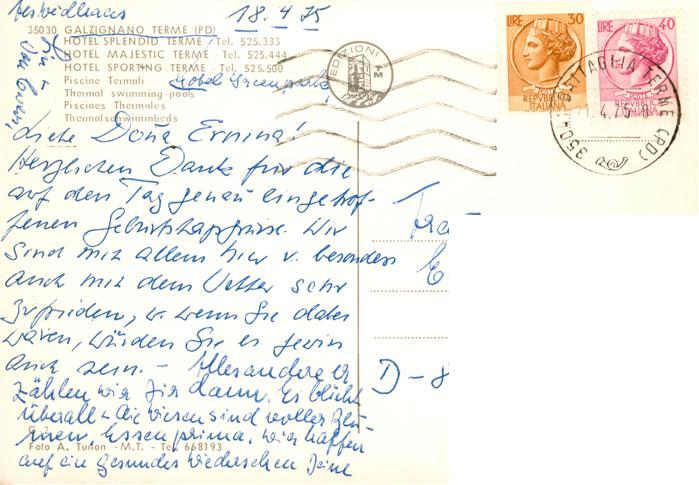 18.4.75
35030 GALZIGNANO TERME (PD)
HOTEL SPLENDID TERME - Tel. 525.333
HOTEL MAJESTIC TERME - Tel. 525.444
HOTEL SPORTING TERME - Tel. 525.500
Piscine Termali
Hotel Greenpark!
Thermal swimming-pools
Piscines Thermales
Thermalschwimmbads
EDIZIONI
LIRE 30
POSTE
REPVBBLICA
ITALIANA
LIRE 40
POSTE
REPVBBLICA
ITALIANA
BATTAGLIA TERME (PD)
Liebe Doña Ernina!
Herzlichen Dank für die
auf den Tag genau eingetrof-
fenen Geburtstagsgrüsse. Wir
sind mit allem hier u. besonders
auch mit dem Wetter sehr
zufrieden, u. wenn Sie dabei
wären, würden Sie es gewiss
auch sein. - Alles andere er
zählen wir Ihr dann. Es blüht
überall - die Wiesen sind voller Blu-
men, Essen prima, wir hoffen
auf ein gesundes Wiedersehen Deine
Foto A. Turion - M.T. - Tel. 668193
D-8